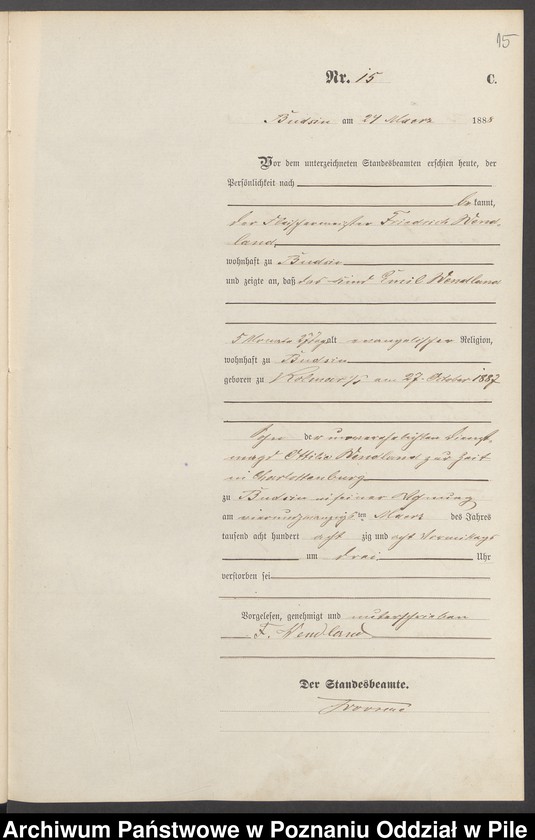 15
Nr. 15 C.
Budsin am 24 Maerz 1888
Vor dem unterzeichneten Standesbeamten erschien heute, der
Persönlichkeit nach
bekannt,
der Fleischermeister Friedrich Wend-
land,
wohnhaft zu Budsin
und zeigte an, daß das Kind Emil Wendland
5 Monate 27 Tage alt evangelischer Religion,
wohnhaft zu Budsin
geboren zu Kolmar i/P am 27. October 1887
Sohn der unverehelichten Dienst-
magd Ottilie Wendland zur Zeit
in Charlottenburg
zu Budsin in seiner Wohnung
am vierundzwanzigsten Maerz des Jahres
tausend acht hundert acht zig und acht Vormittags
um drei Uhr
verstorben sei
Vorgelesen, genehmigt und unterschrieben
F. Wendland
Der Standesbeamte.
Archiwum Państwowe w Poznaniu Oddział w Pile